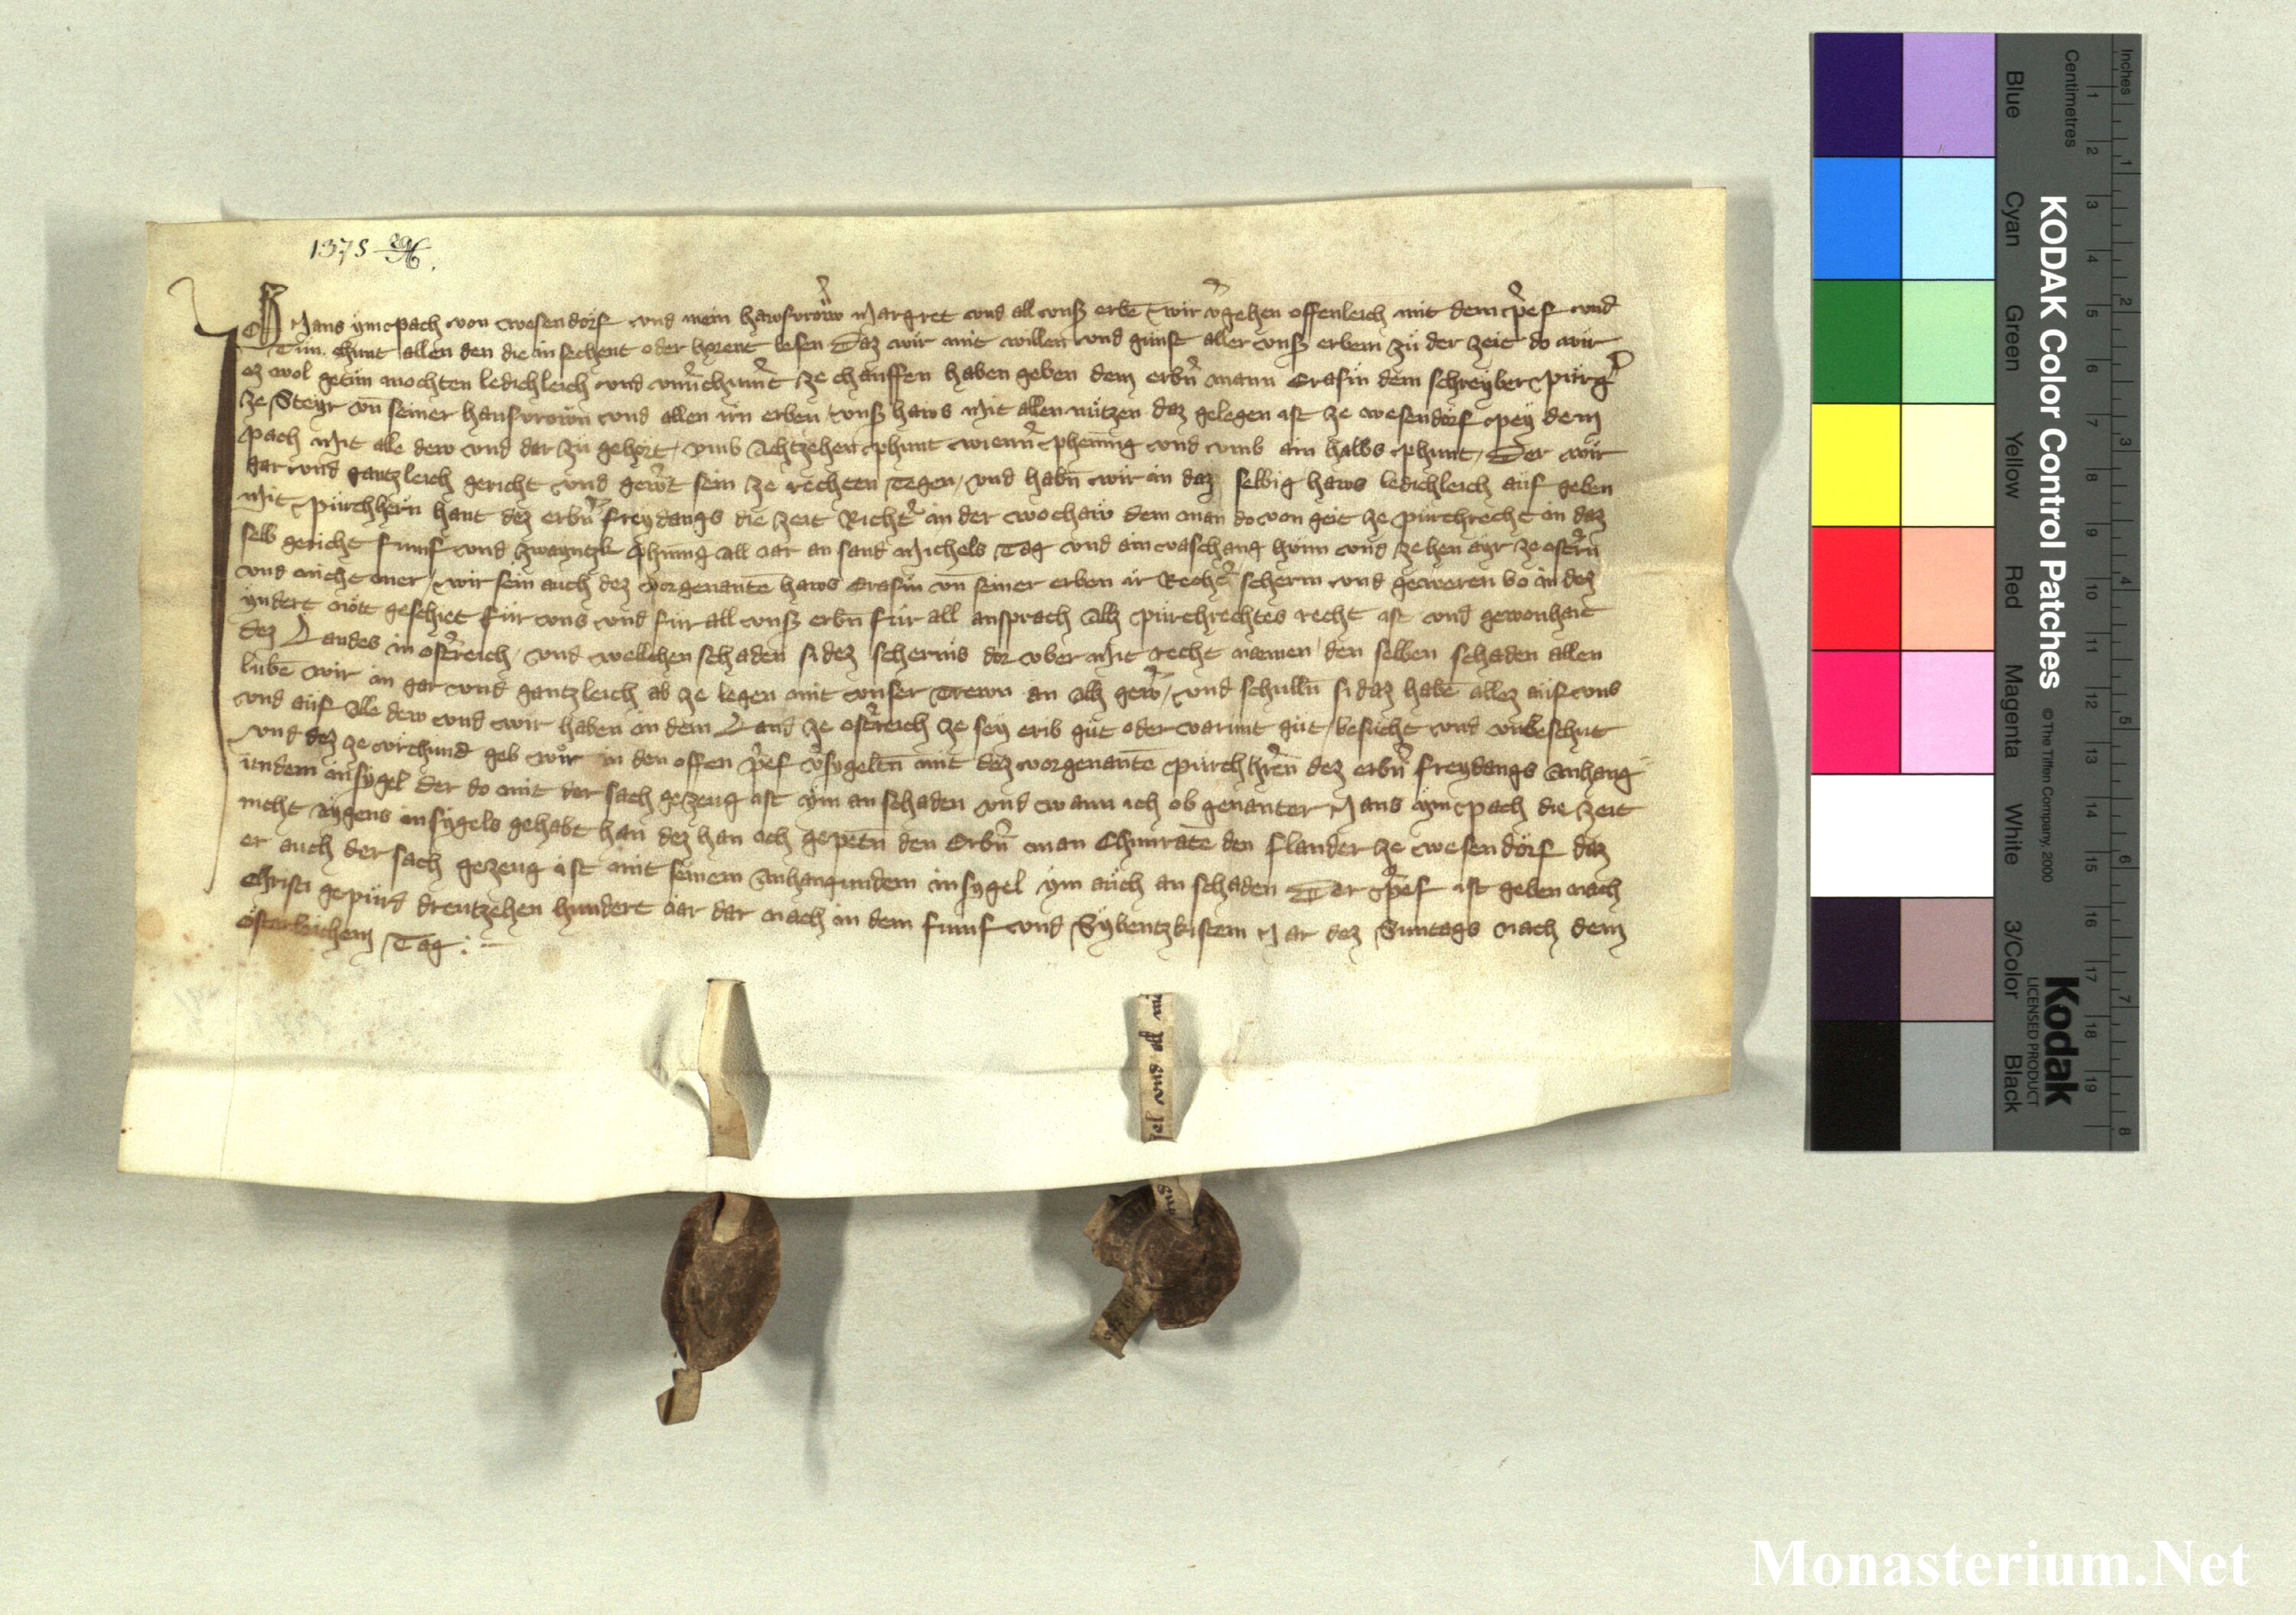 1375
Ich Hans ympach von wesendorf vnd mein hawsvrow Margret vnd all vnß erbē wir vgehen offenleich mit dem pref vnd
Tün chunt allen den die in sechent oder horent lesen Daz wir mit willen vnd gunst aller vnß erbem zü der zeit do wir
ez wol getün mochten ledichleich vnd ze chauffen haben geben dem erbn mann Erasm dem schreyber purg
ze Steyr vn seiner hausvrown vnd allen irn erben vnß haws Mit allen nützen daz gelegen ist ze wesendorf pey dem
pach Mit alle dew vnd dar zü gehort vmb Achtzehen phunt wienn phenning vnd vmb ain halbs phunt Der wir
gar vnd gantzleich gericht vnd gewt sein ze rechten tegen vnd habn wir in daz selbig haws ledichleich auf geben
Mit purchhern hant dez erbn freydangs die zeit Richt in der wochaw dem man do von geit ze purchrecht in daz
selb gericht funf vnd zwayntzk phning all iar an sand Michels Tag vnd ain vaschang hünn vnd zehen ayr ze ostrn
vnd nicht mer wir sein auch dez vorgenantē haws Erasm vn seiner erben ir Recht scherm vnd geweren wo in dez
yndert nött geschiet für vns vnd für all vnß erbn für all ansprach Alz purchrechtes recht ist vnd gewonhait
dez Landes in ostreich vnd wellchen schaden si dez scherms dor vber Mit recht nämen den selben schaden allen
lube wir in gar vnd gantzleich ab ze legen mit vnser trewn an Alz gew vnd schulln si daz habē allez auf vns
vnd auf Alle dew vnd wir haben in dem Land ze ostreich ze sey erib güt oder varunt güt besücht vnd vnbeschut
Vnd dez ze vrchünd geb wir in den offen pref vsygeltn mit dez vorgenantē purchhren dez erbn freydangs Anhang
undem insygel der do mit der sach gezeug ist ym an schaden vnd wann ich ob genanter Hans ympach die zeit
nicht aygens insygels gehabt han dez han ich gepetn den Erbn man Chunratē den flander ze wesendorf daz
er auch der sach gezeug ist mit seinem Anhangundem insygel ym auch an schaden Der pref ist geben nach
Christi gepurd dreutzehen hundert iar dar nach in dem funf vnd Sybentzkistem Jar dez Suntags nach dem
osterleichem Tag
vnd all
KODAK Color Control Patches
© The Tiffen Company, 2000
Kodak
LICENSED PRODUCT
Inches
1 2 3 4 5 6 7 8
Centimetres
1 2 3 4 5 6 7 8 9 10 11 12 13 14 15 16 17 18 19
Blue Cyan Green Yellow Red Magenta White 3/Color Black
Monasterium.Net